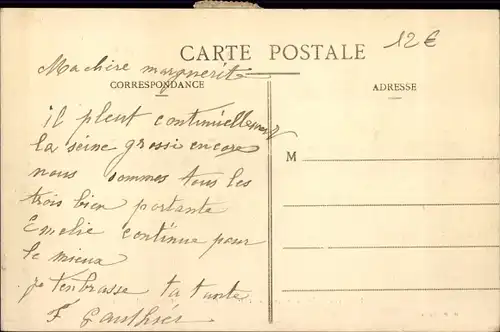 CARTE POSTALE
12€
Ma chère marguerite
CORRESPONDANCE
ADRESSE
il pleut continuellement
la seine grossi encore
nous sommes tous les
trois bien portante
Emelie continue pour
le mieux
je t'enbrasse ta tante
M
F Gauthier